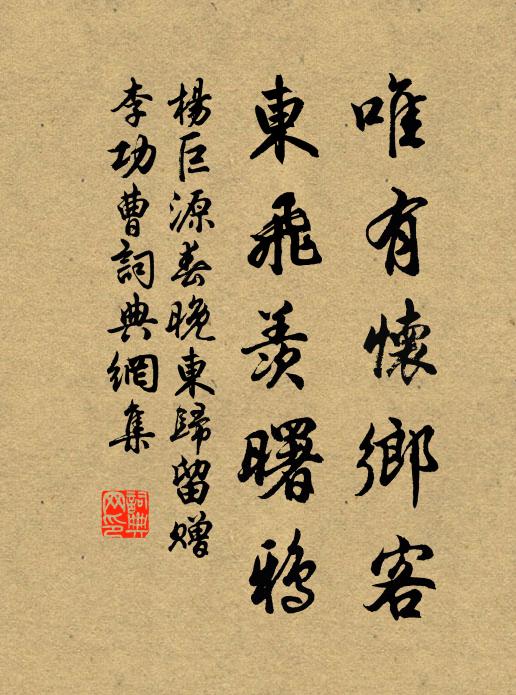 唯有懷鄉客
東飛羨曙鴉
楊巨源春晚東歸留贈
李功曹詞典網集
詞典網印